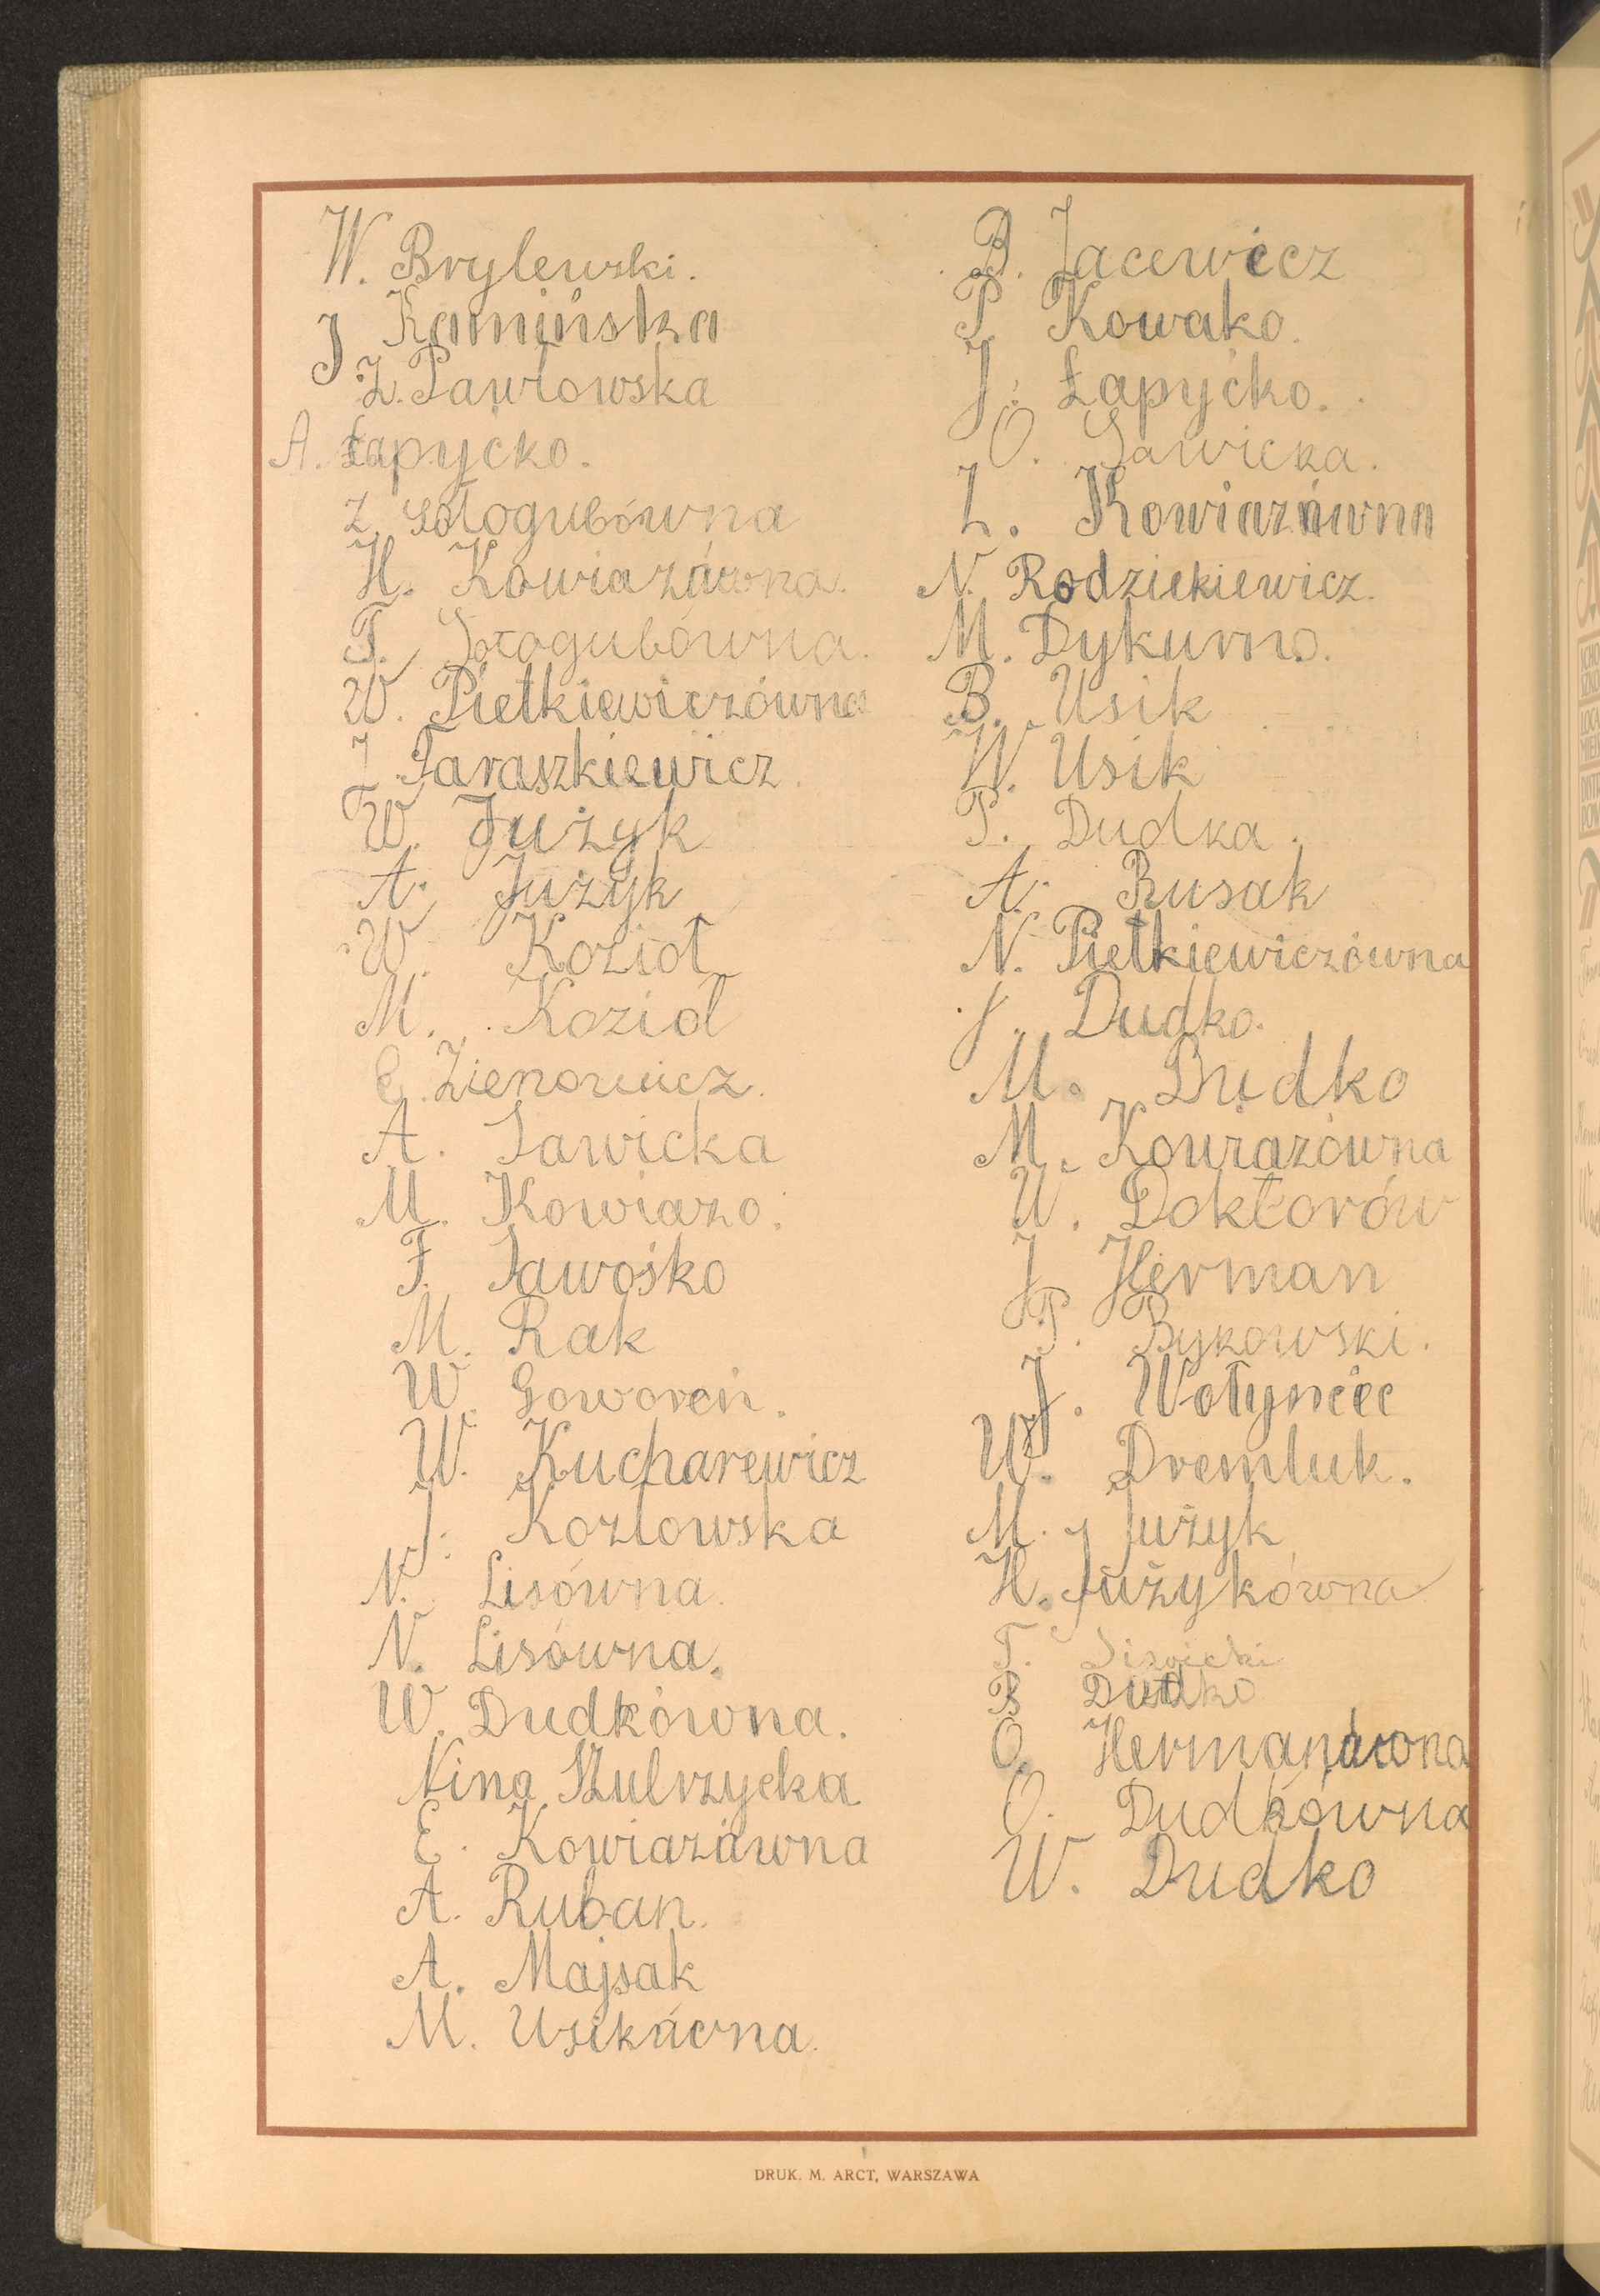 W. Brylewski.
J Kamińska
Z. Pawłowska
A. Łapyćko.
Z. Sołogubówna
H. Kowiazówna.
T. Sołogubówna.
W. Pietkiewiczówna
J. Taraszkiewicz.
W. Jużyk
A. Jużyk
W. Kozioł
M. Kozioł
E. Zienowicz.
A. Sawicka
M. Kowiazo.
F. Jawośko
M. Rak
W. Goworeń.
W. Kucharewicz
J. Kozłowska
N. Lisówna.
N. Lisówna.
W. Dudkówna.
Nina Szulrzycka
E. Kowiazówna
A. Ruban.
A. Majsak
M. Usikówna.
B. Jacewicz
P. Kowako.
J. Łapyćko.
O. Sawicka.
L. Kowiazówna
N. Rodziekiewicz.
M. Dykurno.
B. Usik
W. Usik
P. Dudka.
A. Rusak
N. Pietkiewiczówna
J. Dudko.
M. Dudko
M. Kowiazówna
W. Doktorów
J. Herman
P. Bykowski.
J. Wołyniec
W. Dremluk.
M. Jużyk
H. Jużykówna
T.
B Dudko
O. Hermanówna
O. Dudkówna
W. Dudko
DRUK. M. ARCT, WARSZAWA